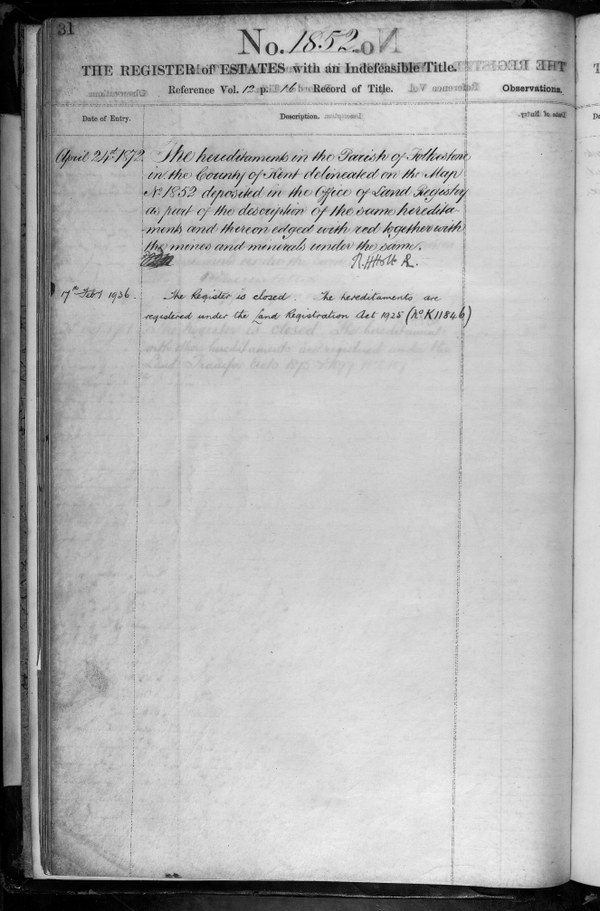 31
No. 1852
THE REGISTER of ESTATES with an Indefeasible Title.
Reference Vol. 12 p. 16 Record of Title.
Observations.
Date of Entry.
Description.
April 24th 1872.
The hereditaments in the Parish of Folkestone
in the County of Kent delineated on the Map
No 1852 deposited in the Office of Land Registry
as part of the description of the same heredita-
ments and thereon edged with red together with
the mines and minerals under the same.
R.H. Holt R.
17th Feby 1936.
The Register is closed. The hereditaments are
registered under the Land Registration Act 1925 (No K11846)